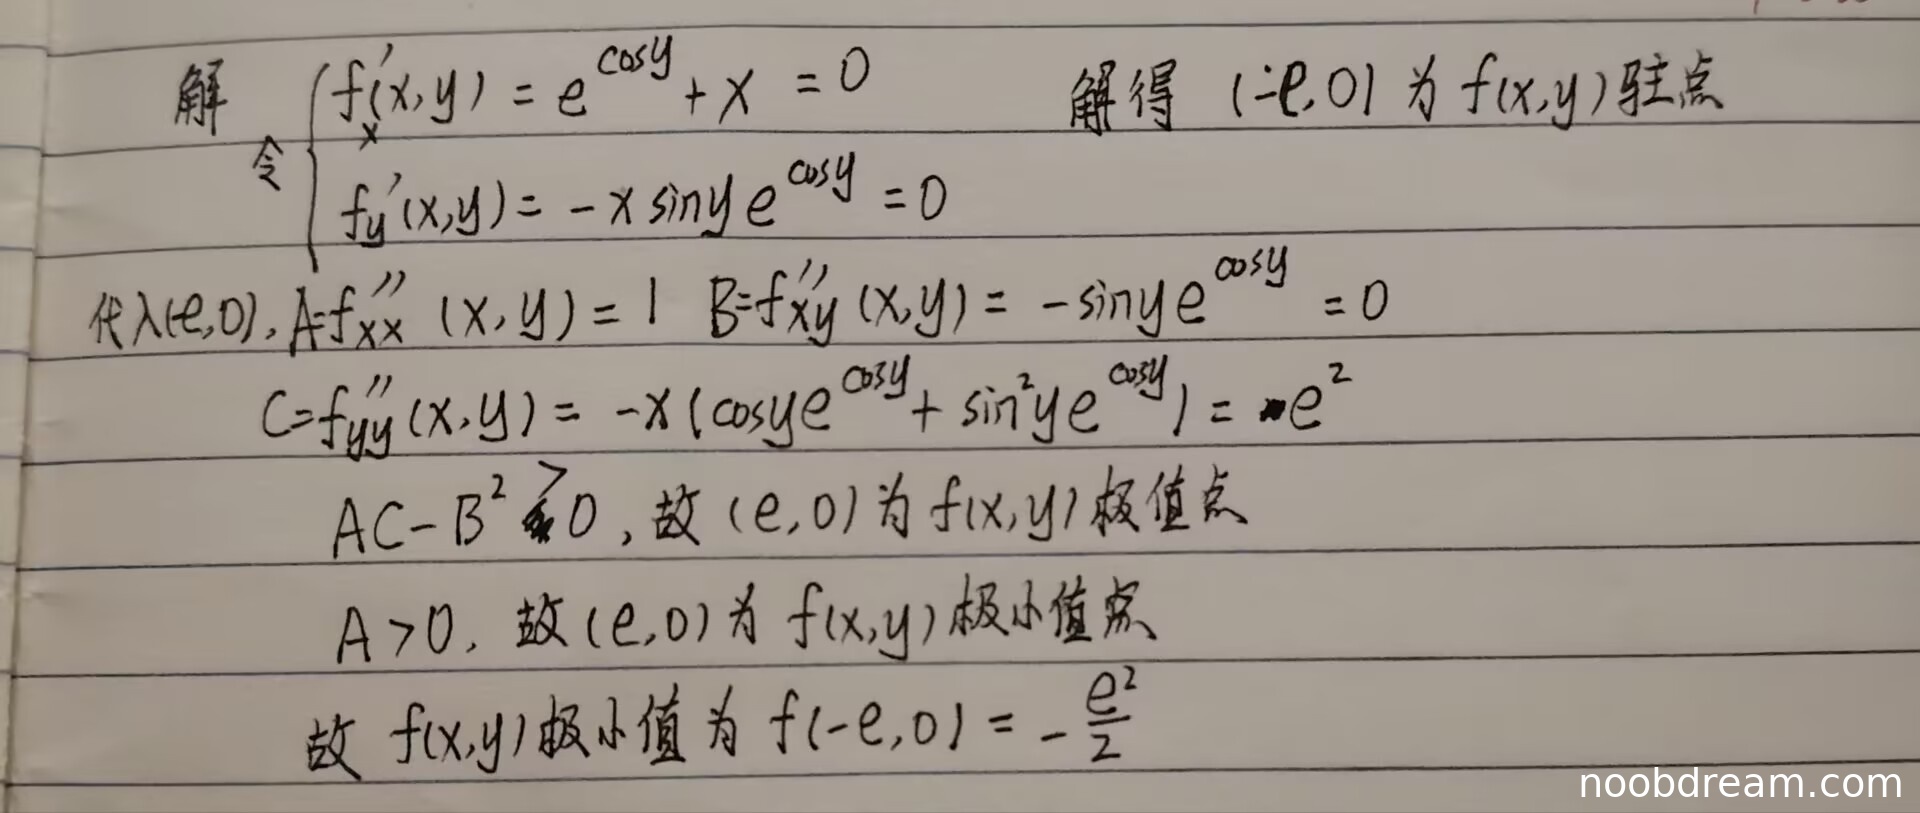 解 令 { f'x(x,y) = e^cosy + x = 0 解得 (-e,0) 为 f(x,y) 驻点
f'y(x,y) = -x siny e^cosy = 0
代入(-e,0), A=f''xx (x,y) = 1 B=f''xy (x,y) = -siny e^cosy = 0
C=f''yy (x,y) = -x (cosy e^cosy + sin²y e^cosy) = e²
AC - B² > 0, 故 (e,0) 为 f(x,y) 极值点
A > 0, 故 (e,0) 为 f(x,y) 极小值点
故 f(x,y) 极小值为 f(-e,0) = - e²/2
noobdream.com